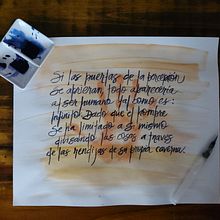 Si las puertas de la percepción
se abrieran, todo aparecería
al ser humano tal como es:
infinito. Dado que el hombre
se ha limitado a sí mismo
divisando las cosas a través
de las rendijas de su propia caverna.